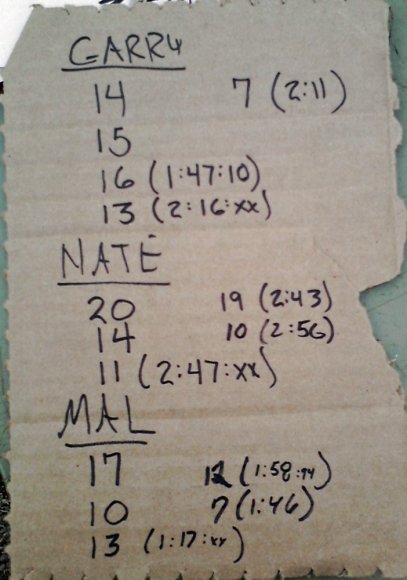 GARRY
14 7 (2:11)
15
16 (1:47:10)
13 (2:16:xx)
NATE
20 19 (2:43)
14 10 (2:56)
11 (2:47:xx)
MAL
17 12 (1:58:94)
10 7 (1:46)
13 (1:17:xx)